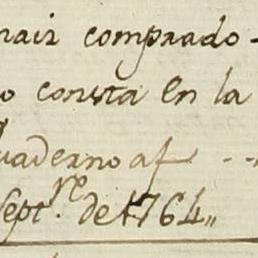 maiz comprado -
o consta en la
quaderno af - - -
Sept.re de 1764,,